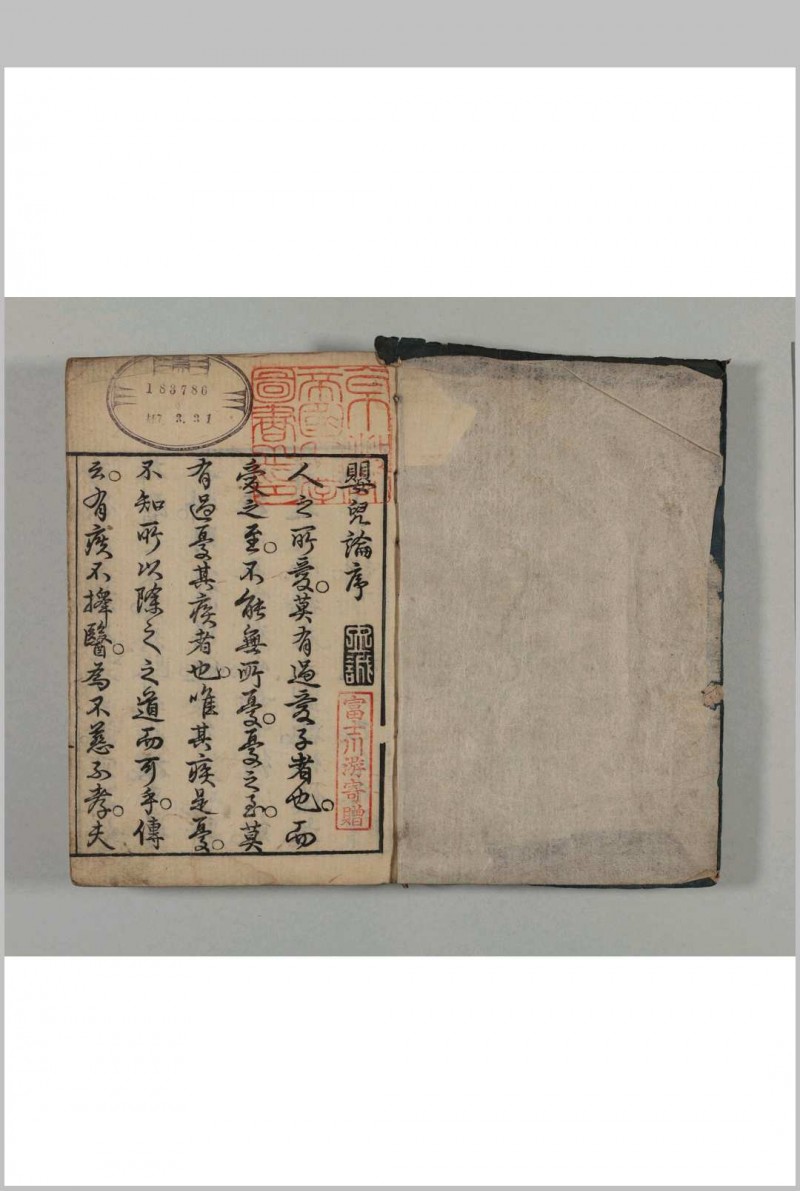 183786
3. 31
京都
帝國大學
圖書之印
嬰兒論序
富士川游寄贈
人之所愛。莫有過愛子者也。而
愛之至。不能無所憂。憂之至。莫
有過憂其疾者也。唯其疾是憂。
不知所以除之之道而可乎。傳
云。有疾不擇醫。為不慈不孝。夫